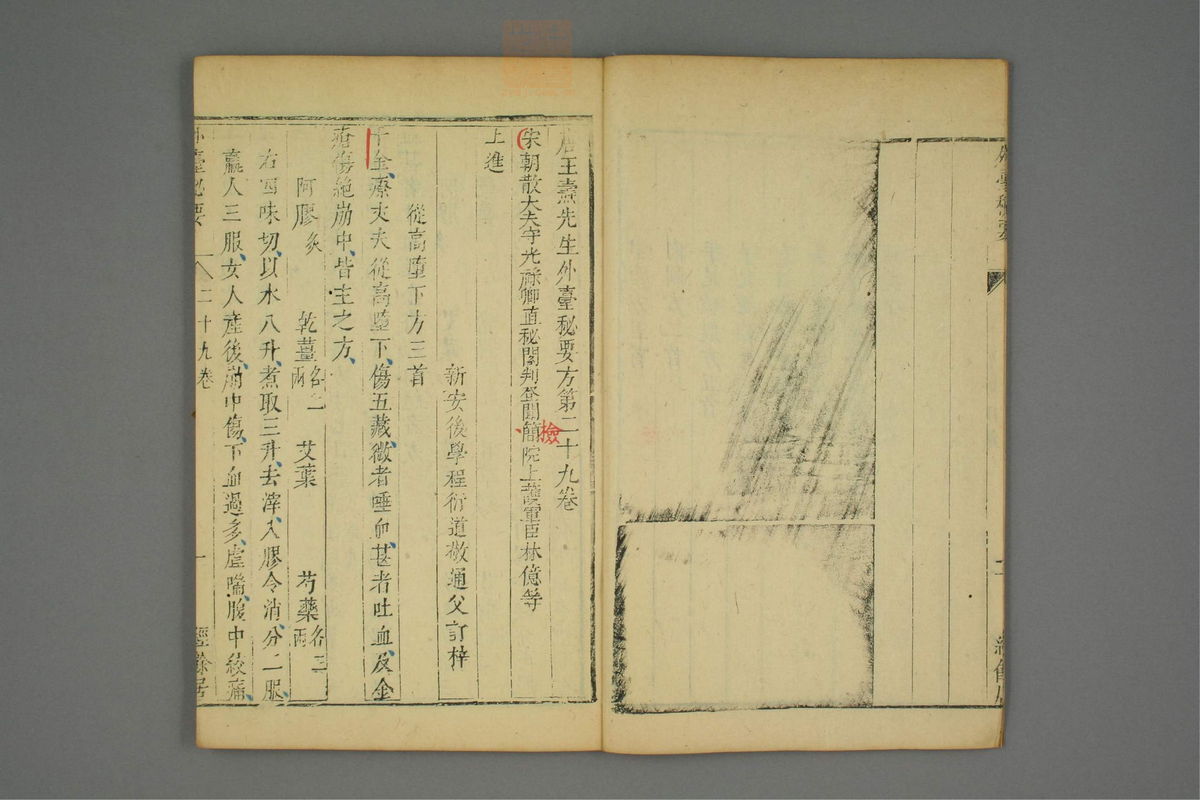 唐王燾先生外臺秘要方第二十九卷
宋朝散大夫守光祿卿直秘閣判登聞簡院上護軍臣林億等
檢
上進
新安後學程衍道敬通父訂梓
從高墮下方三首
千金療丈夫從高墮下傷五藏微者唾血甚者吐血及金
瘡傷絕崩中皆主之方
阿膠炙 乾薑各二兩 艾葉 芍藥各三兩
右四味切以水八升煮取三升去滓入膠令消分二服
羸人三服女人產後崩中傷下血過多虛喘腹中絞痛
外臺秘要 二十九卷 一 經餘居